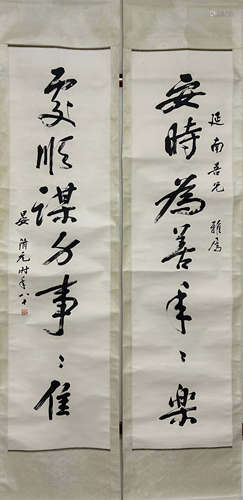 延南吾兄 雅属
安時為善年〻樂
處順謀分事〻佳
晏濟元時年八十